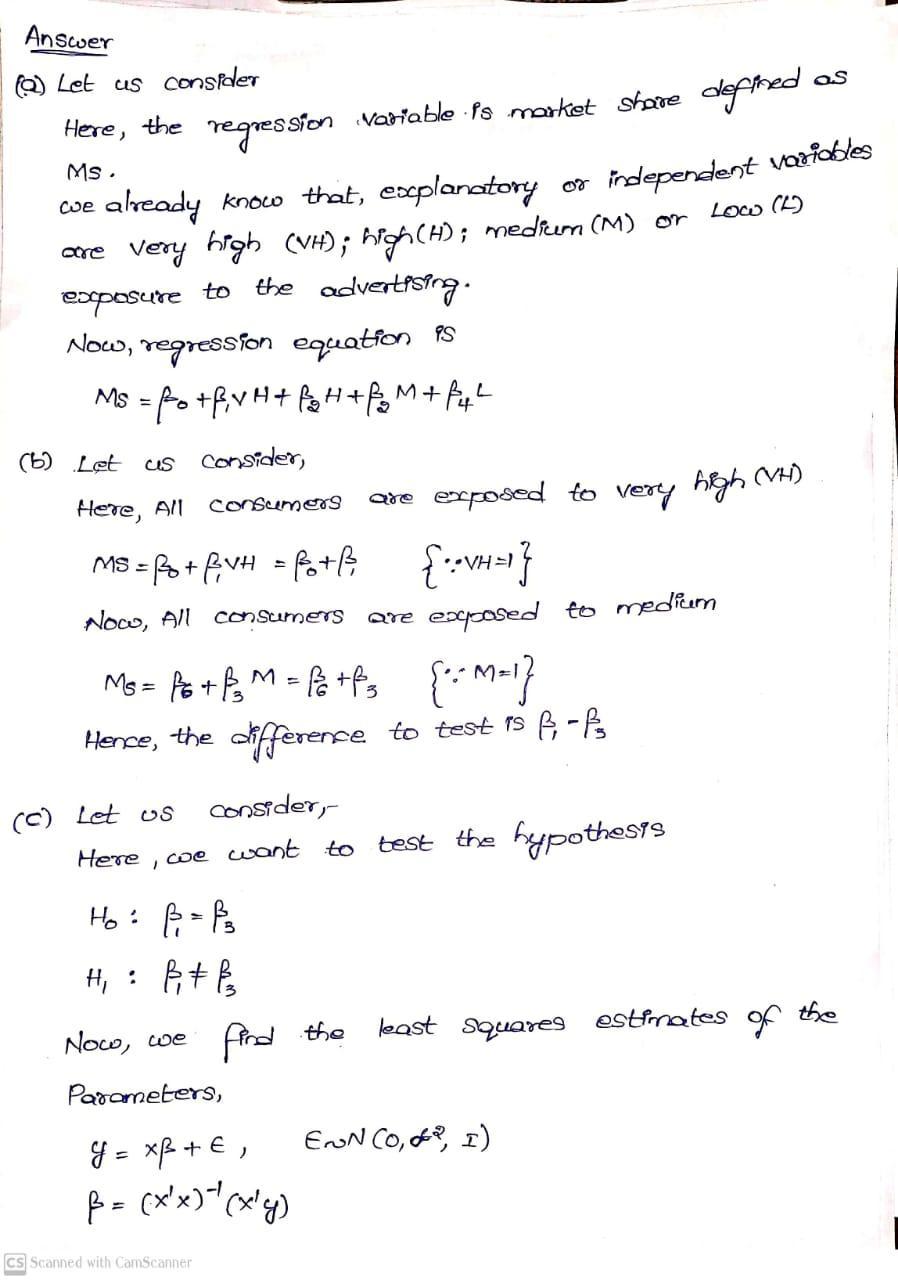 Answer
(a) Let us consider
Here, the regression variable is market share defined as
Ms.
we already know that, explanatory or independent variables
are very high (VH); high (H); medium (M) or Low (L)
exposure to the advertising.
Now, regression equation is
Ms = β₀ + β₁VH + β₂H + β₂M + β₄L
(b) Let us consider,
Here, All consumers are exposed to very high (VH)
MS = β₀ + β₁VH = β₀ + β₁ {∵ VH = 1}
Now, All consumers are exposed to medium
Ms = β₀ + β₃ M = β₀ + β₃ {∵ M = 1}
Hence, the difference to test is β₁ - β₃
(c) Let us consider,-
Here, we want to test the hypothesis
H₀ : β₁ = β₃
H₁ : β₁ ≠ β₃
Now, we find the least squares estimates of the
Parameters,
y = xβ + ϵ, ϵ~N(0, σ², I)
β = (x'x)⁻¹(x'y)
CS Scanned with CamScanner